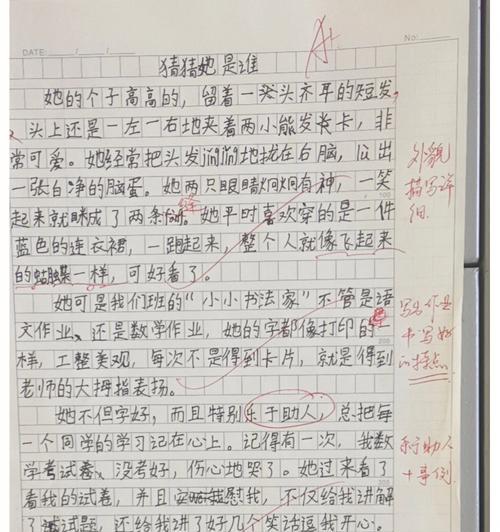 DATE: / /
No:
A+
猜猜她是谁
她的个子高高的，留着一头齐耳的短发，
头上还是一左一右地夹着两小熊发卡，非
常可爱。她经常把头发 地拢在右脑，露出
一张白净的脑蛋。她两只眼睛炯炯有神，一笑
起来就眯成了两条 。她平时喜欢穿的是一件
蓝色的连衣裙，一跑起来，整个人就像飞起来
的蝴蝶一样，可好看了。
外貌
描写详
细.
她可是我们班的“小小书法家”不管是语
文作业、还是数学作业，她的字都像打印的一
样，工整美观，每次不是得到卡片，就是得到
老师的大拇指表扬。
写作业
书写好
的特点
她不但字好，而且特别乐于助人，总把每
一个同学的学习记在心上。记得有一次，我数
学考试卷、没考好，伤心地哭了。她过来看了
看我的试卷，并且 安慰我，不仅给我讲解
了 试题，还给我讲了好几个笑话逗我开心。
乐于助人
+事例
200